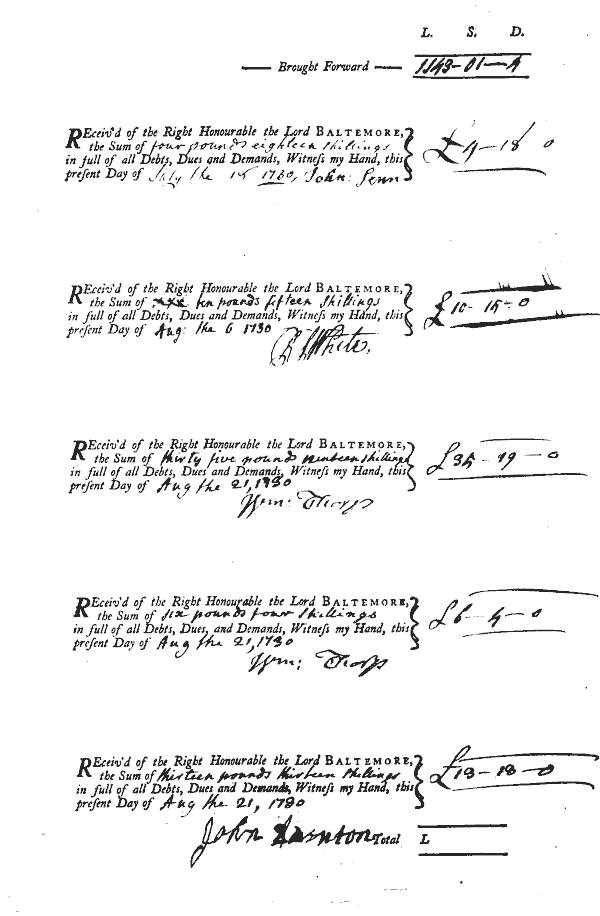 L. S. D.
Brought Forward 1143-01-4
REceiv'd of the Right Honourable the Lord BALTEMORE,
the Sum of four pounds eighteen shillings
in full of all Debts, Dues and Demands, Witneſs my Hand, this
preſent Day of July the 15 1730, John: Senn
£4-18 0
REceiv'd of the Right Honourable the Lord BALTEMORE,
the Sum of ten pounds fifteen shillings
in full of all Debts, Dues and Demands, Witneſs my Hand, this
preſent Day of Aug: the 6 1730
White,
£10-15-0
REceiv'd of the Right Honourable the Lord BALTEMORE,
the Sum of thirty five pounds nineteen shillings
in full of all Debts, Dues and Demands, Witneſs my Hand, this
preſent Day of Aug the 21, 1730
Wm: Thorp
£35-19-0
REceiv'd of the Right Honourable the Lord BALTEMORE,
the Sum of six pounds four shillings
in full of all Debts, Dues, and Demands, Witneſs my Hand, this
preſent Day of Aug the 21, 1730
Wm: Thorp
£6-4-0
REceiv'd of the Right Honourable the Lord BALTEMORE,
the Sum of thirteen pounds thirteen shillings
in full of all Debts, Dues and Demands, Witneſs my Hand, this
preſent Day of Aug the 21, 1730
£13-13-0
John Total L